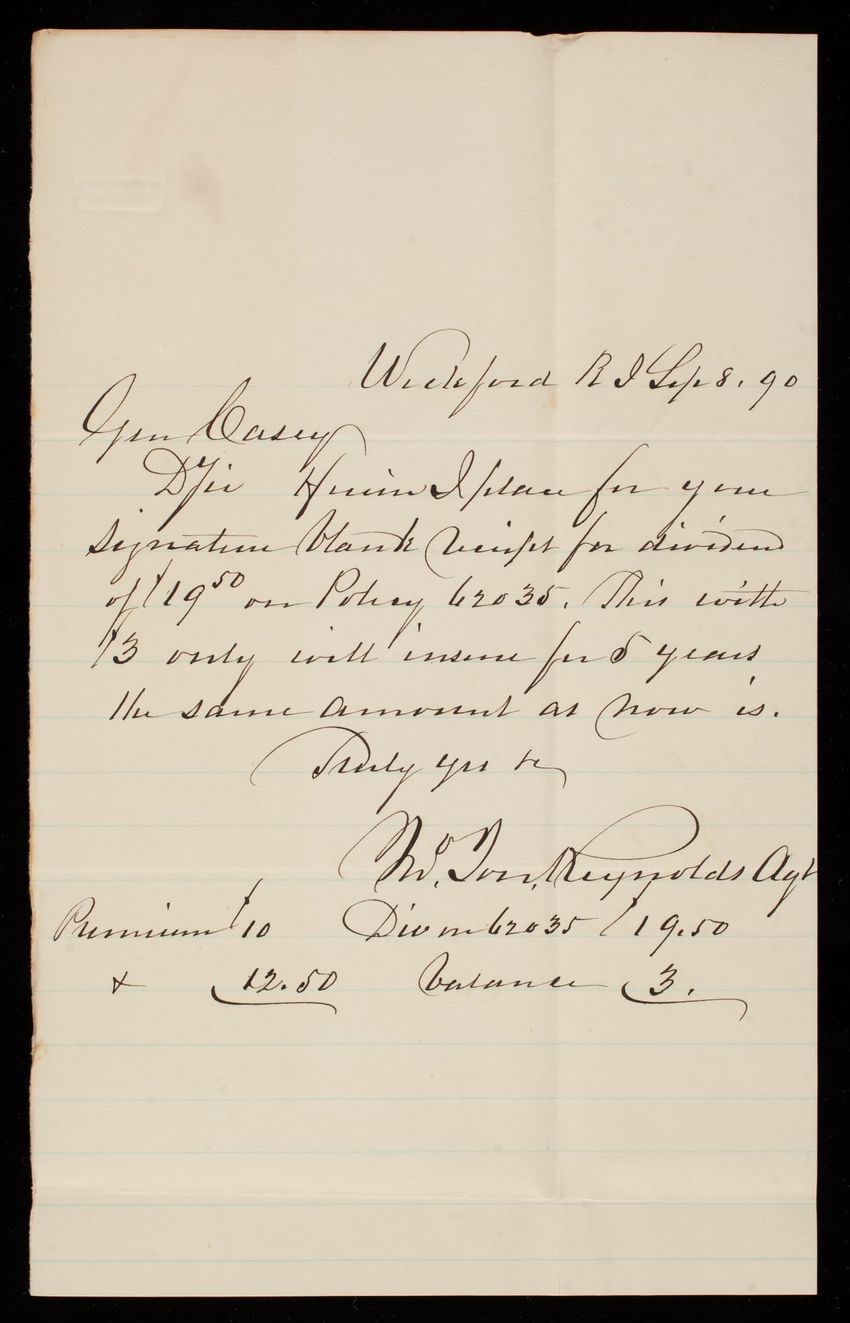 Wickford R I Sep 8. 90
Gen Casey
D Sir Herein I place for your
signature blank receipt for dividend
of $19 50 on Policy 62035. This with
$3 only will insure for 5 years
the same amount as now is.
Truly yrs &c
Reynolds Agt
Premium $10 Div on 62035 $19.50
+ 12.50 balance 3.